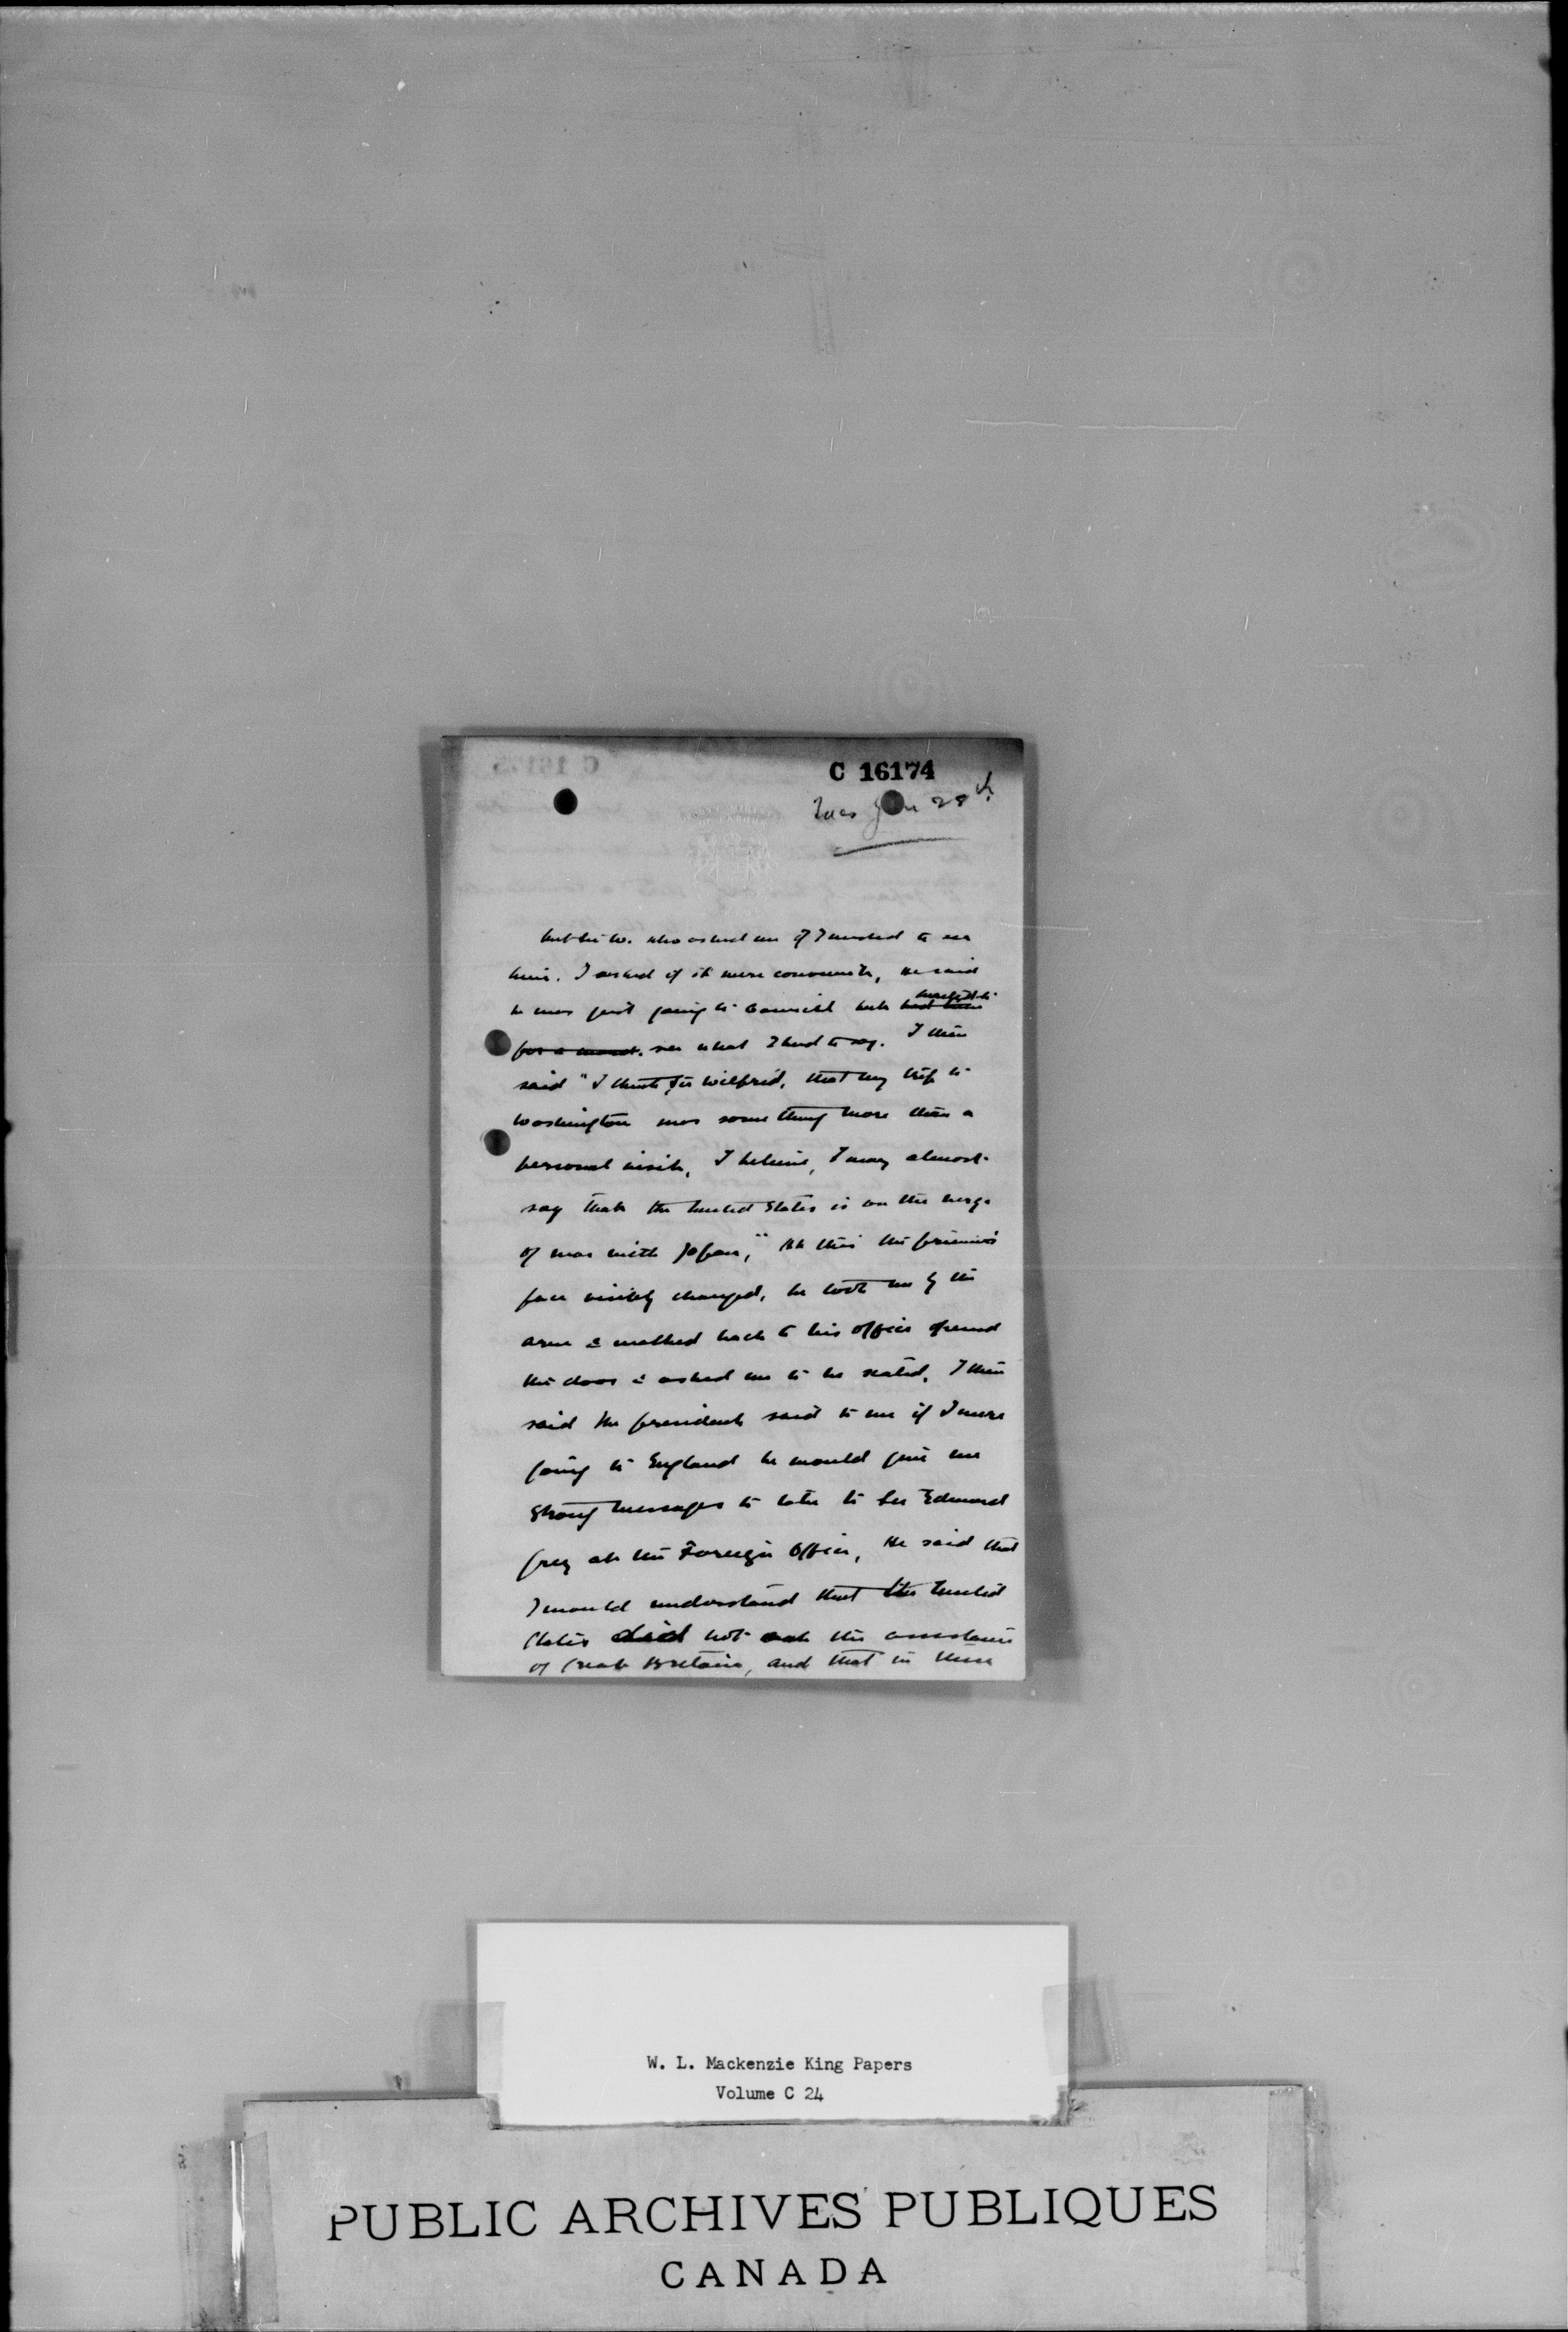 C 16174
Tues Jan 28th
Met Sir W. who asked me if I wanted to see
him. I asked if it were convenient, he said
he was just going to Council but had time
for a moment. see what I had to say. I then
said "I think Sir Wilfrid, that my trip to
Washington was something more than a
personal visit, I believe, I may almost
say that the United States is on the verge
of war with Japan," At this the premier's
face visibly changed, he took me by the
arm & walked back to his office opened
the door & asked me to be seated. I then
said the president said to me if I were
going to England he would give me
strong messages to take to Sir Edward
Grey at the Foreign Office, He said that
I would understand that the United
States did not ask the assistance
of Great Britain, and that in these
W. L. Mackenzie King Papers
Volume C 24
PUBLIC ARCHIVES PUBLIQUES
CANADA